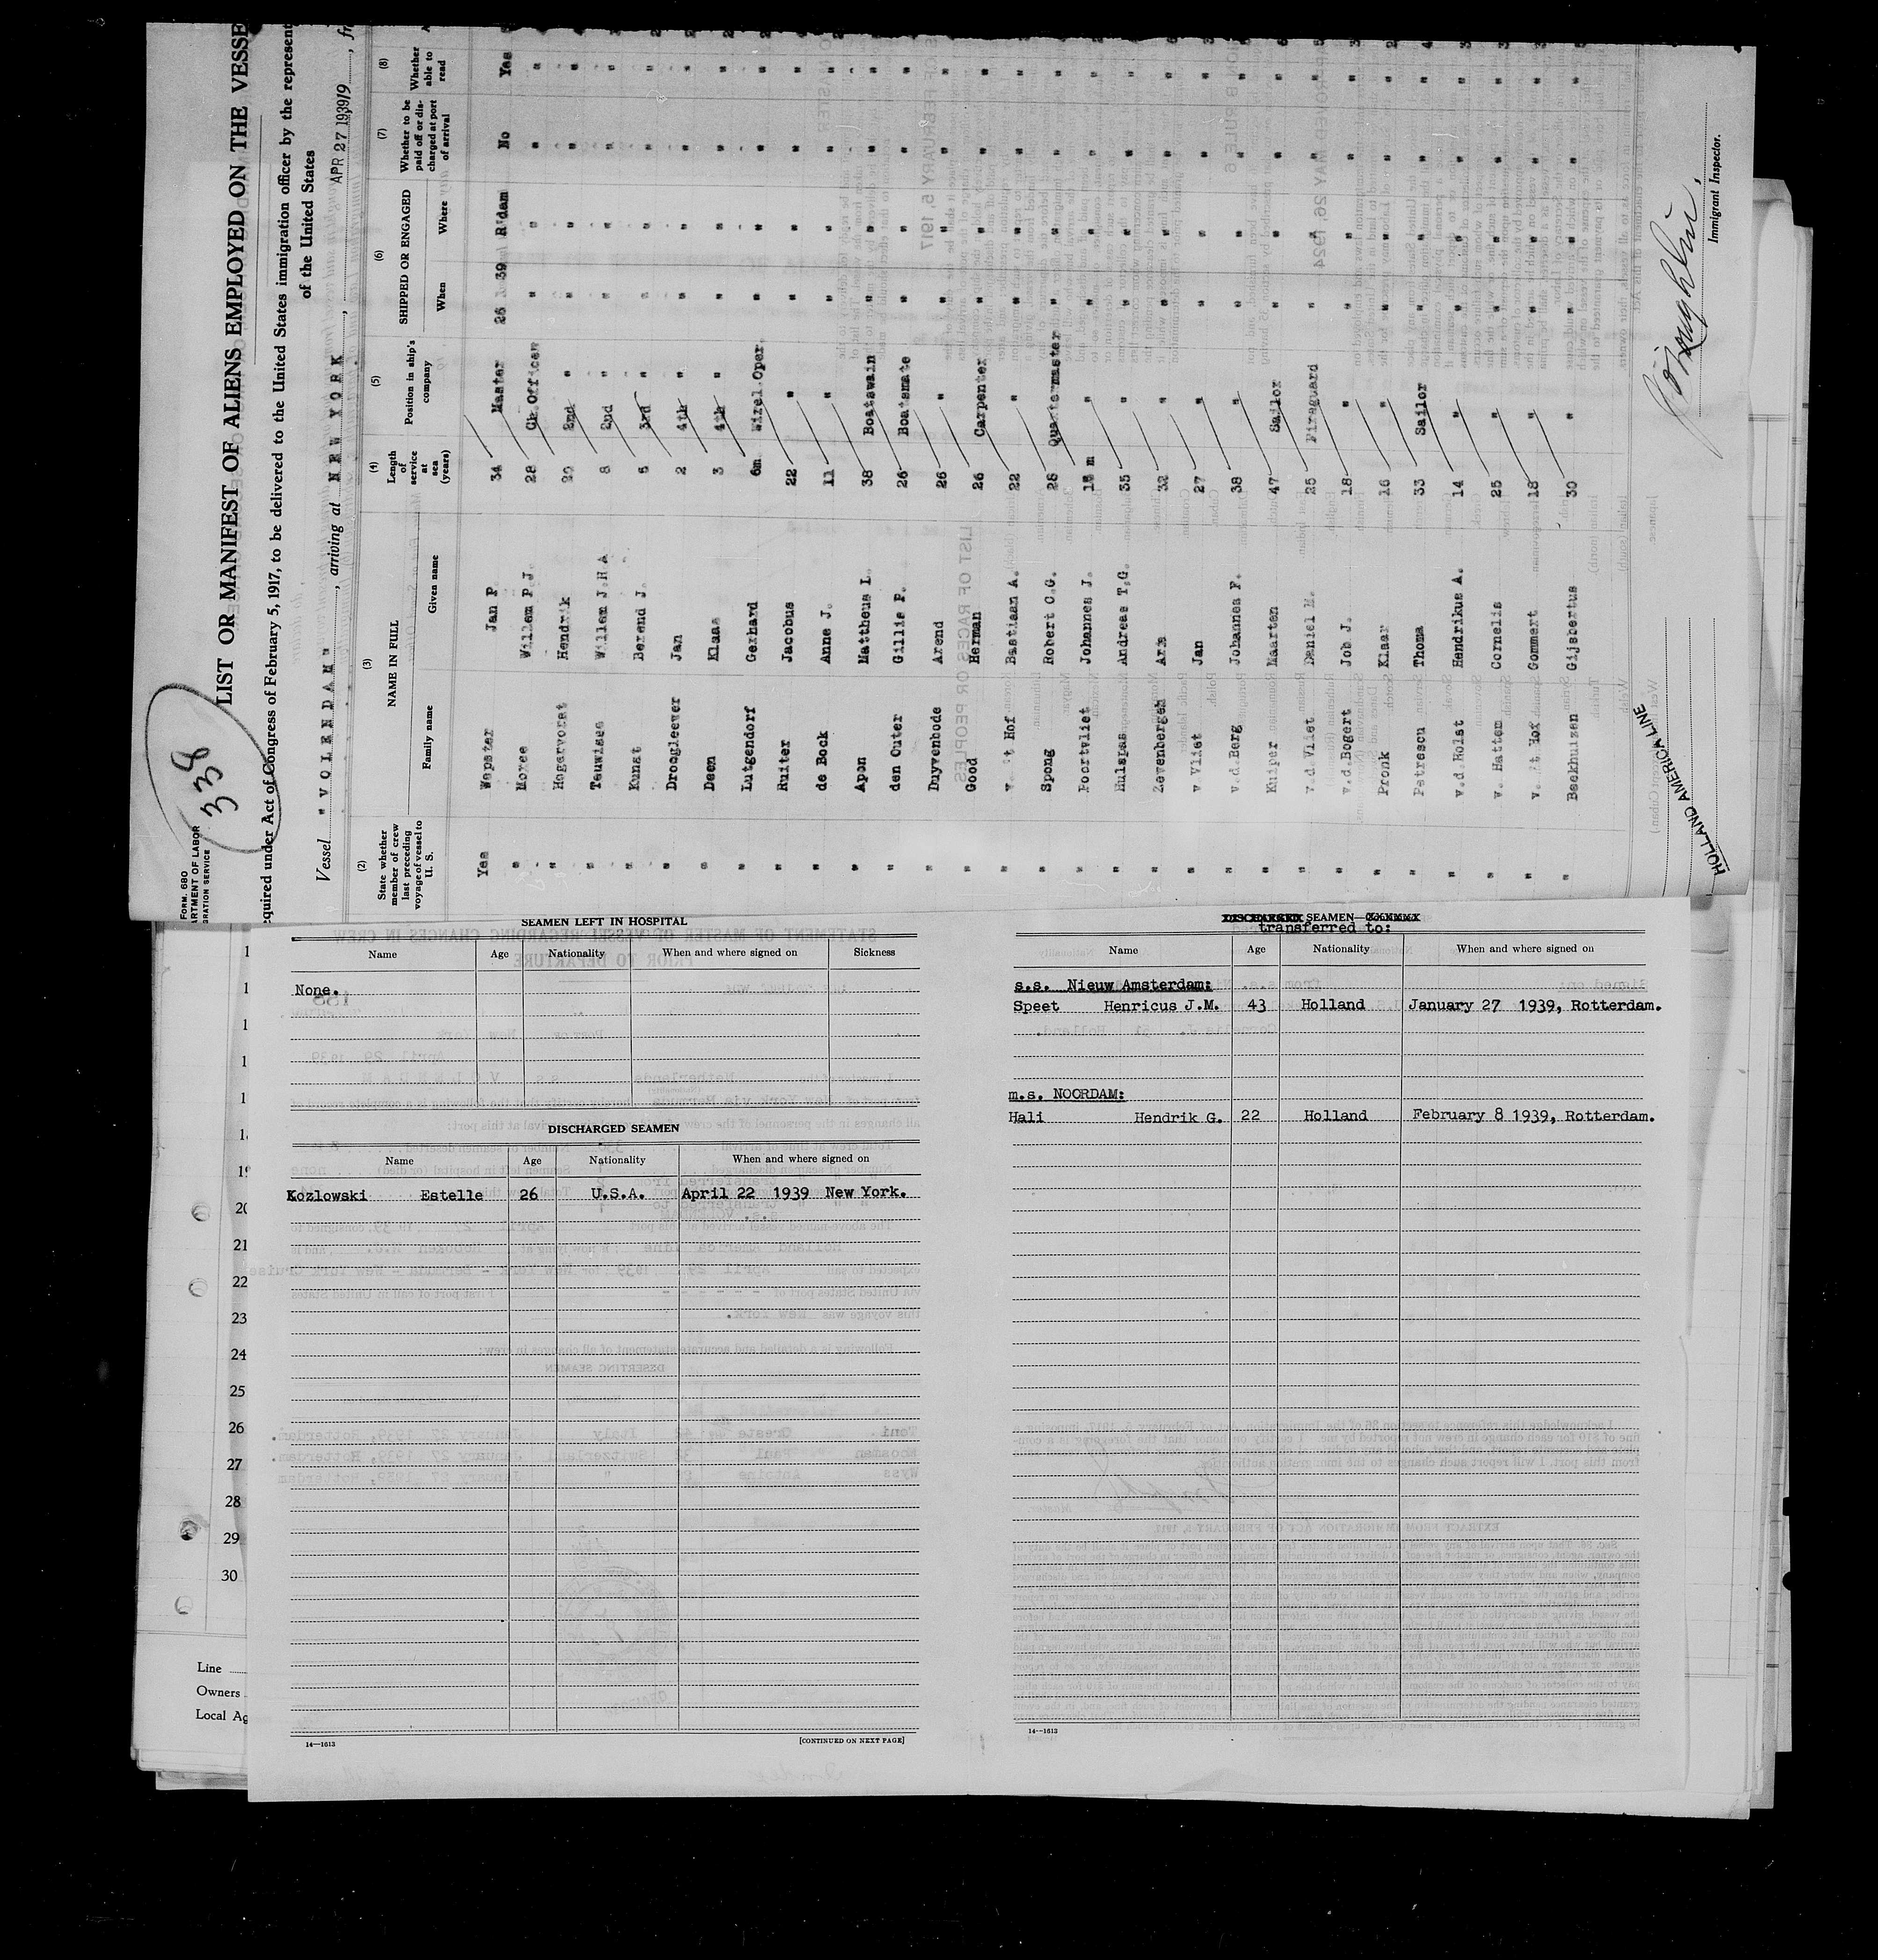 FORM 680
ARTMENT OF LABOR
GRATION SERVICE
338
LIST OR MANIFEST OF ALIENS EMPLOYED ON THE VESSE
equired under Act of Congress of February 5, 1917, to be delivered to the United States immigration officer by the represent
of the United States
Vessel "VOLENDAM", arriving at NEW YORK, APR 27 1939 19, fr
(2) (3) (4) (5) (6) (7) (8)
State whether member of crew last preceding voyage of vessel to U. S.
NAME IN FULL
Family name Given name
Length of service at sea (years)
Position in ship's company
SHIPPED OR ENGAGED
When Where
Whether to be paid off or discharged at port of arrival
Whether able to read
Yes Wepster Jan P. 34 Master 26 39 R'dam No Yes
" Moree Willem P.J. 28 Ch.Officer " " " "
" Hogarvorst Hendrik 20 2nd " " " " "
" Teuwisse Willem J.H A 8 2nd " " " " "
" Kunst Berend J. 5 3rd " " " " "
" Droogleever Jan 2 4th " " " " "
" Deen Klaas 3 4th " " " " "
" Lutgendorf Gerhard 6m Wirel.Oper. " " " "
" Ruiter Jacobus 22 " " " " "
" de Bock Anne J. 11 " " " " "
" Apon Mattheus L. 38 Boatswain " " " "
" den Outer Gillis P. 26 Boatsmate " " " "
" Duyvenbode Arend 26 " " " " "
" Good Herman 26 Carpenter " " " "
" v. 't Hof Bastiaan A. 22 " " " " "
" Spong Robert C.G. 28 Quartermaster " " " "
" Poortvliet Johannes J. m " " " " "
" Hulspas Andreas T.G. 35 " " " " "
" Zevenbergen Arie 32 " " " " "
" v Vliet Jan 27 " " " " "
" v.d.Berg Johannes F. 38 " " " " "
" Kuiper Maarten 47 Sailor " " " "
" v.d. Vliet Daniel M. 25 Fireguard " " " "
" v.d.Bogert Job J. 18 " " " " "
" Pronk Klaas 16 " " " " "
" Petrescu Thoma 33 Sailor " " " "
" v.d.Holst Hendrikus A. 14 " " " " "
" v. Hattem Cornelis 25 " " " " "
" v. 't Hof Gommert 18 " " " " "
" Backhuizen Gijsbertus 30 " " " " "
HOLLAND AMERICA LINE
Immigrant Inspector.
SEAMEN LEFT IN HOSPITAL
Name Age Nationality When and where signed on Sickness
None.
DISCHARGED SEAMEN
Name Age Nationality When and where signed on
Kozlowski Estelle 26 U.S.A. April 22 1939 New York.
14—1613 [CONTINUED ON NEXT PAGE]
DISCHARGED SEAMEN—
transferred to:
Name Age Nationality When and where signed on
s.s. Nieuw Amsterdam:
Speet Henricus J.M. 43 Holland January 27 1939, Rotterdam.
m.s. NOORDAM:
Hali Hendrik G. 22 Holland February 8 1939, Rotterdam.
14—1613
20
21
22
23
24
25
26
27
28
29
30
Line
Owners
Local Ag